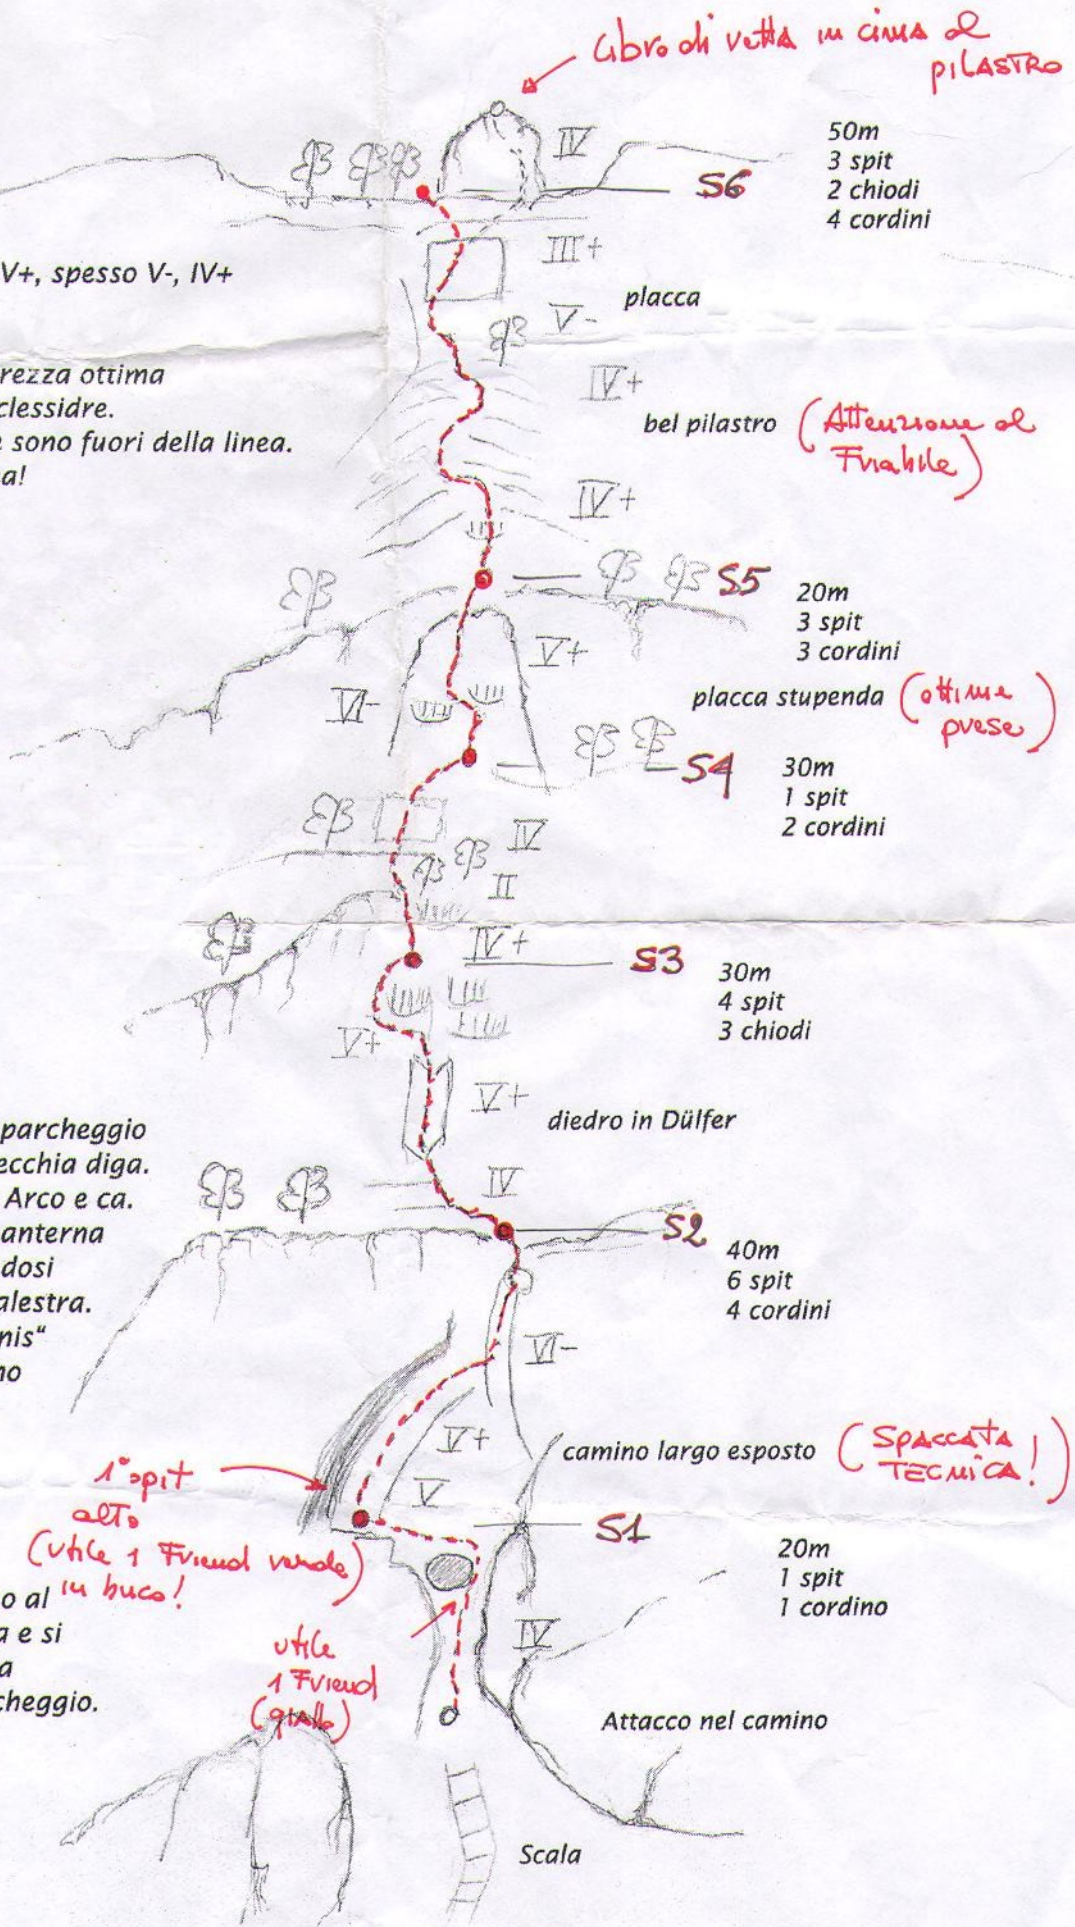 Libro di vetta in cima al
PILASTRO
IV
50m
3 spit
2 chiodi
4 cordini
S6
III+
V+, spesso V-, IV+
placca
V-
rezza ottima
clessidre.
e sono fuori della linea.
a!
IV+
bel pilastro (Attenzione al
Friabile)
IV+
S5
20m
3 spit
3 cordini
V+
VI-
placca stupenda (ottime
prese)
S4
30m
1 spit
2 cordini
IV
II
IV+
S3
30m
4 spit
3 chiodi
V+
V+
diedro in Dülfer
parcheggio
ecchia diga.
Arco e ca.
anterna
dosi
alestra.
nis“
no
IV
S2
40m
6 spit
4 cordini
VI-
V+
camino largo esposto (SPACCATA
TECNICA!)
V
1° spit
alto
(utile 1 Friend verde)
in buco!
S1
20m
1 spit
1 cordino
o al
a e si
a
cheggio.
IV
utile
1 Friend
(giallo)
Attacco nel camino
Scala